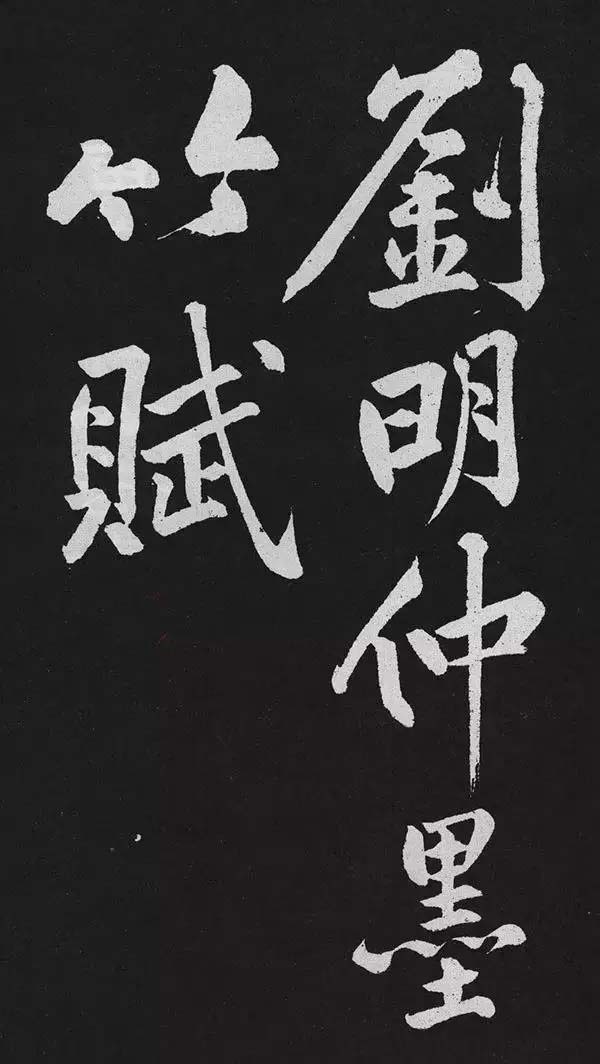 劉明仲墨
竹賦